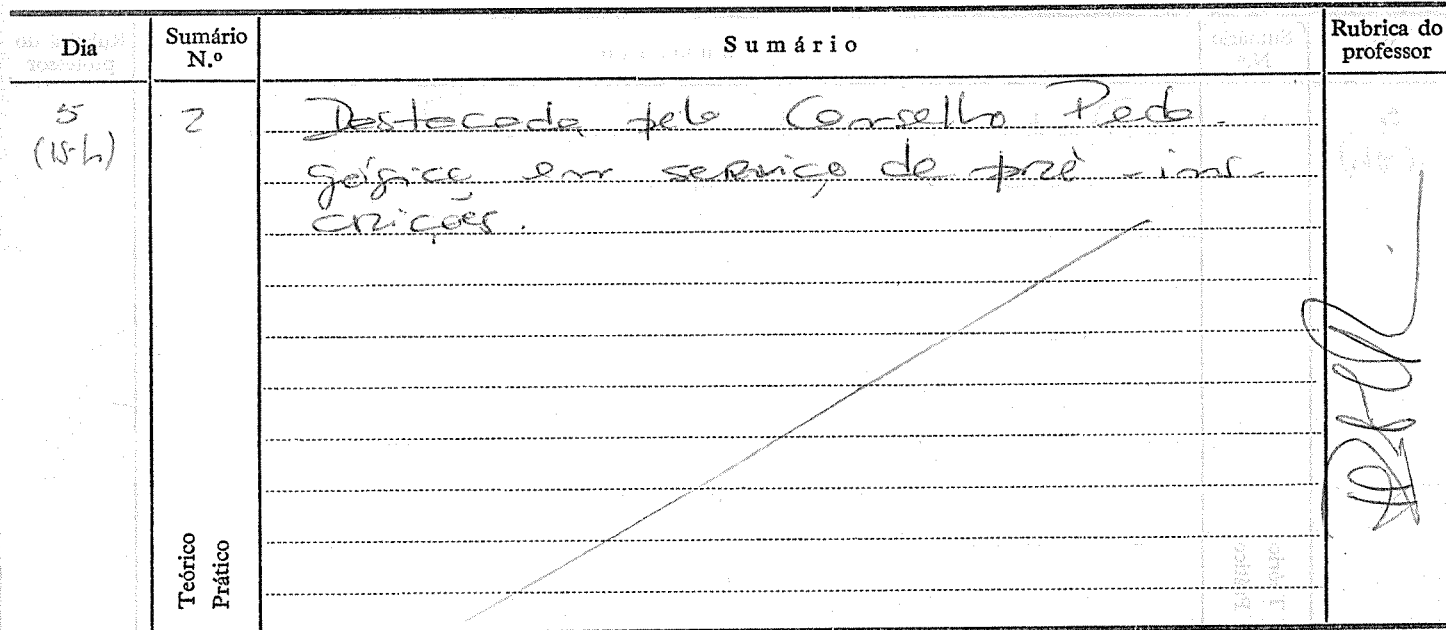 Dia
Sumário
N.º
Sumário
Rubrica do
professor
5
(15h)
2
Destacada pelo Conselho Peda-
gógico em serviço de pré-ins-
crições.
Teórico
Prático